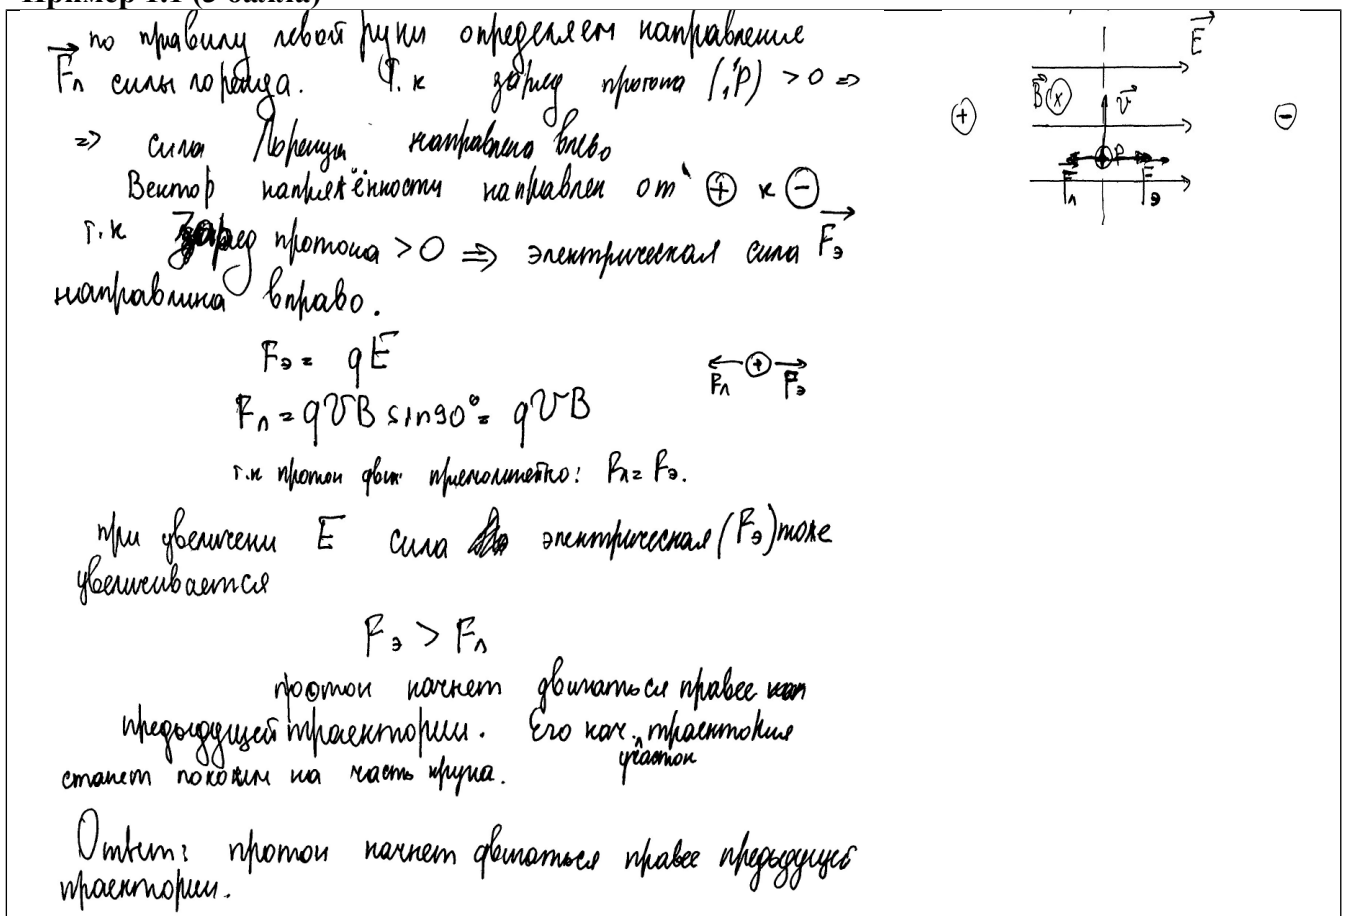 Пример 1.1 (3 балла)
по правилу левой руки определяем направление
F⃗л силы лоренца. Т.к заряд протона (¹₁P) > 0 =>
=> сила Лоренца направлена влево
Вектор напряжённости направлен от ⊕ к ⊖
т.к заряд протона > 0 => электрическая сила F⃗э
направлина вправо.
Fэ = qE⃗
Fл = qVB sin90° = qVB
т.к протон движ. прямолинейно: Fл = Fэ.
при увеличени E сила электрическая (Fэ) тоже
увеличивается
Fэ > Fл
протон начнет двигаться правее
предыдущей траектории. Его нач. участок траектория
станет похожим на часть круга.
Ответ: протон начнет двигаться правее предыдущей
траектории.
E⃗
B⃗ ⊗ v⃗
⊕ ⊖
P
F⃗л F⃗э
⊕
Fл F⃗э